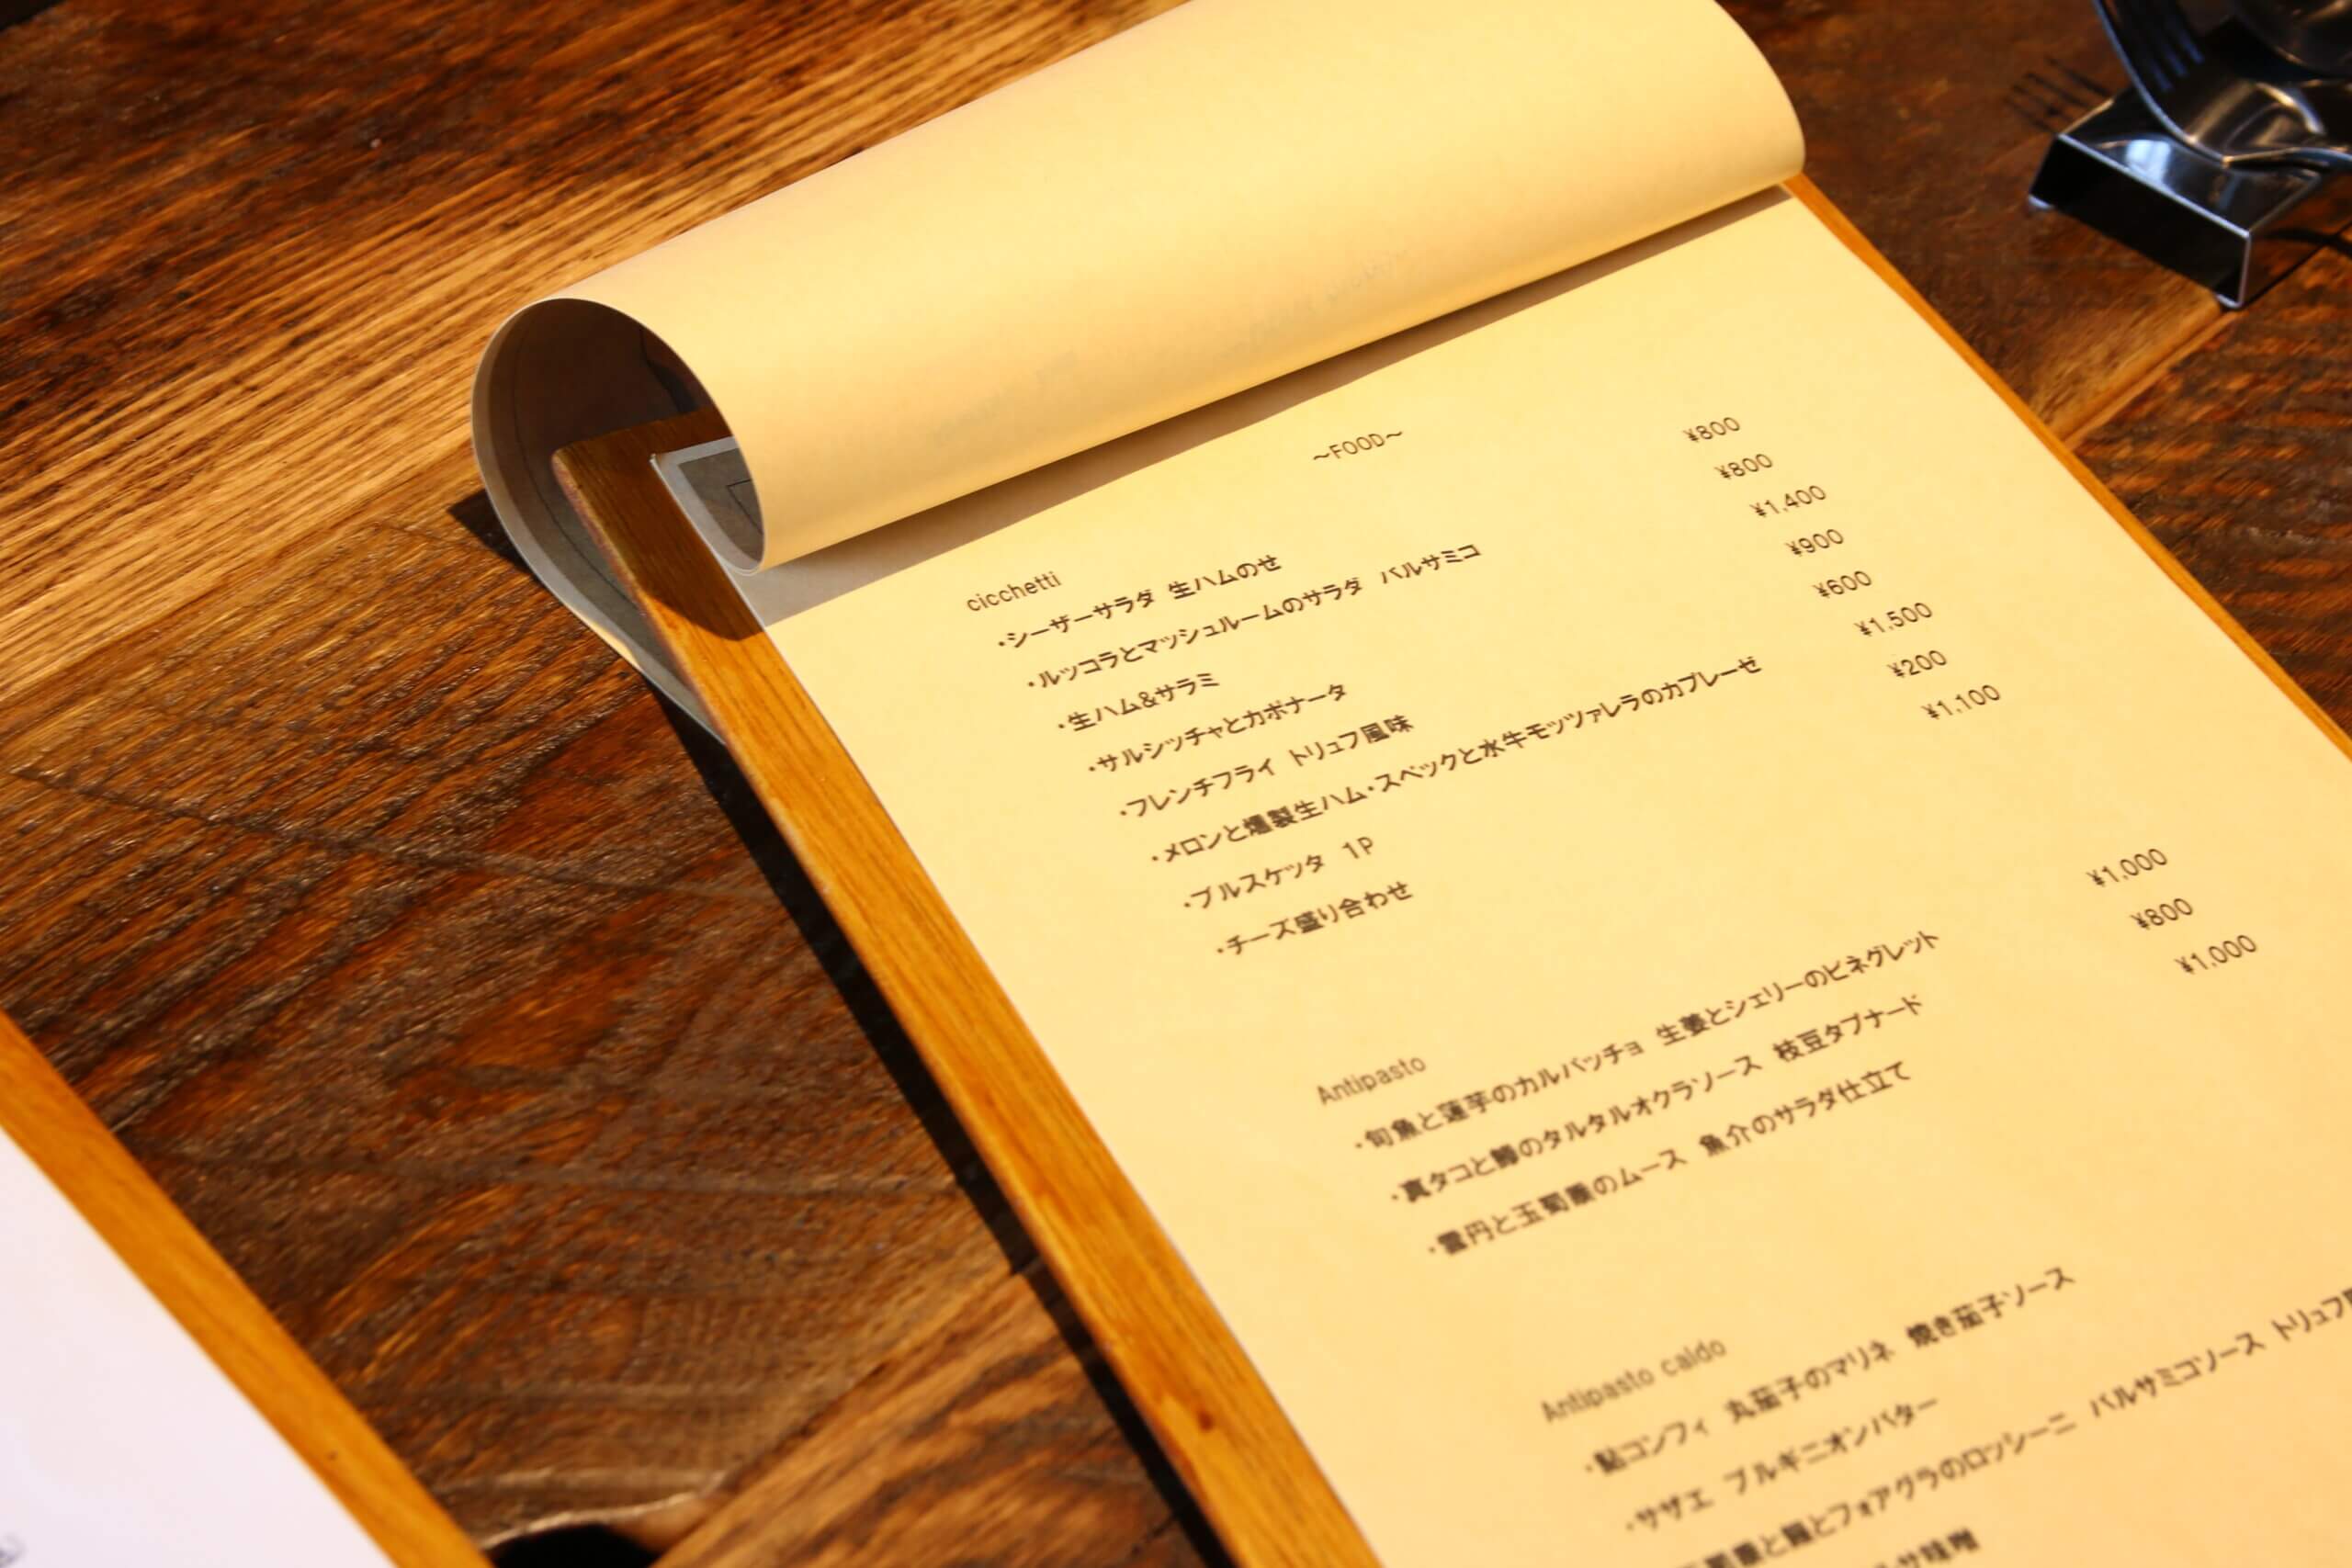 ～FOOD～
cicchetti
・シーザーサラダ 生ハムのせ ¥800
・ルッコラとマッシュルームのサラダ バルサミコ ¥800
・生ハム&サラミ ¥1,400
・サルシッチャとカポナータ ¥900
・フレンチフライ トリュフ風味 ¥600
・メロンと燻製生ハム・スペックと水牛モッツァレラのカプレーゼ ¥1,500
・ブルスケッタ 1P ¥200
・チーズ盛り合わせ ¥1,100
Antipasto
・旬魚と蓮芋のカルパッチョ 生姜とシェリーのビネグレット ¥1,000
・真タコと鱒のタルタルオクラソース 枝豆タプナード ¥800
・雲丹と玉蜀黍のムース 魚介のサラダ仕立て ¥1,000
Antipasto caldo
・鮎コンフィ 丸茄子のマリネ 焼き茄子ソース
・サザエ ブルギニオンバター
蜀黍と鰻とフォアグラのロッシーニ バルサミコソース トリュフ
味噌